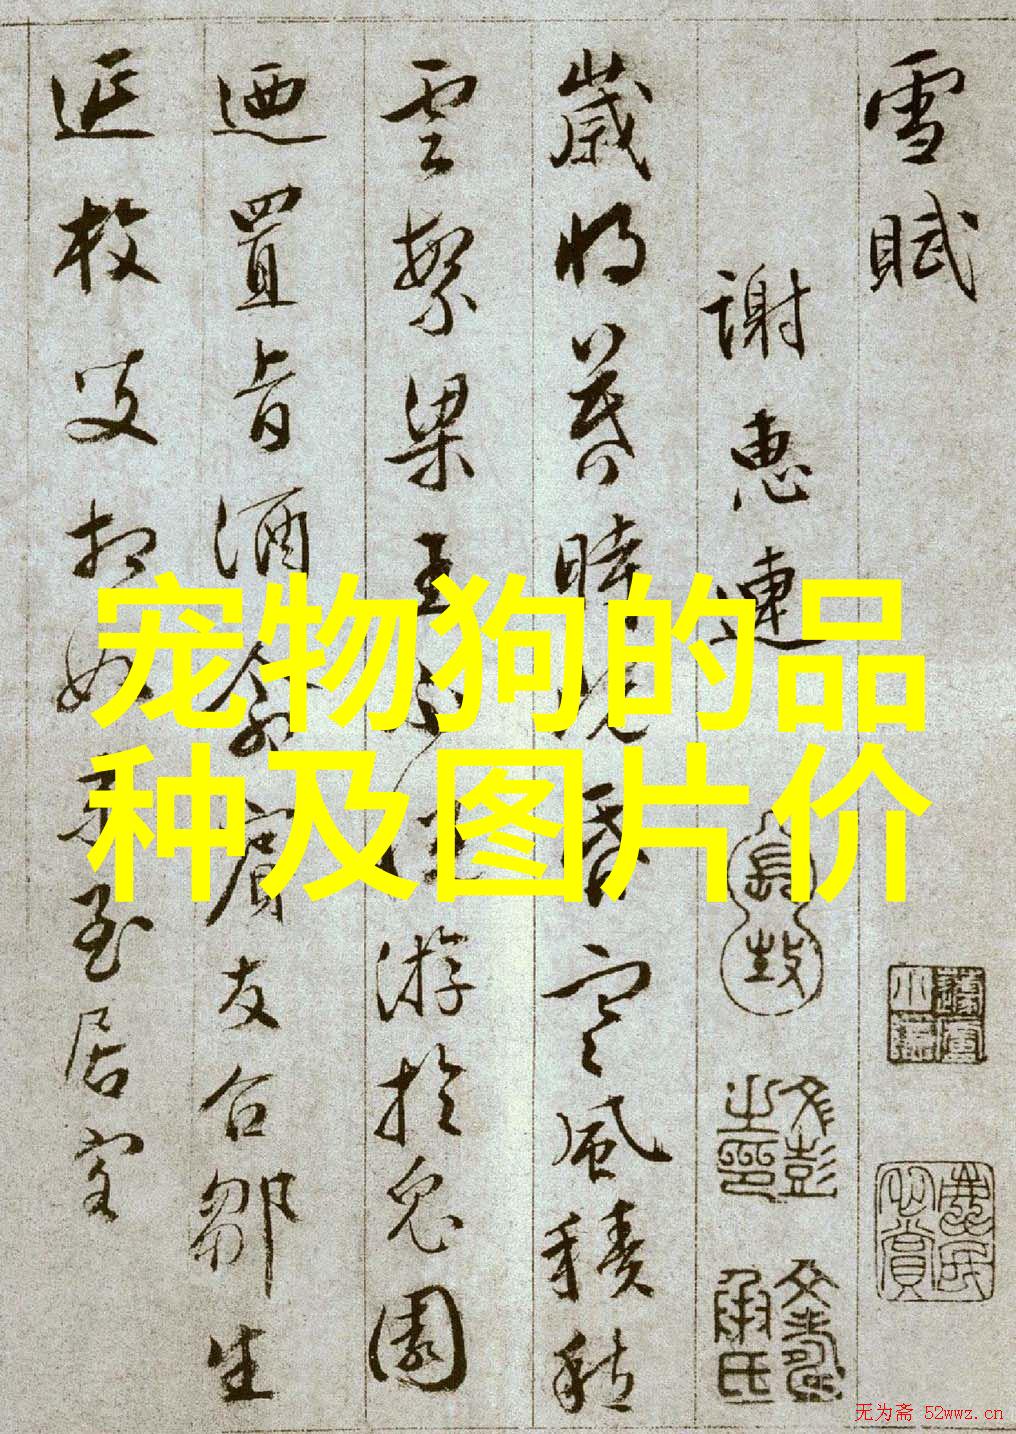 雪賦
謝惠連
歲將暮時既昏寒風積愁
雲繁梁王不悅游於兔園
迺置旨酒命賓友召鄒生
延枚叟相如末至居客
宠物狗的品
种及图片价
无为斋 52wwz.cn